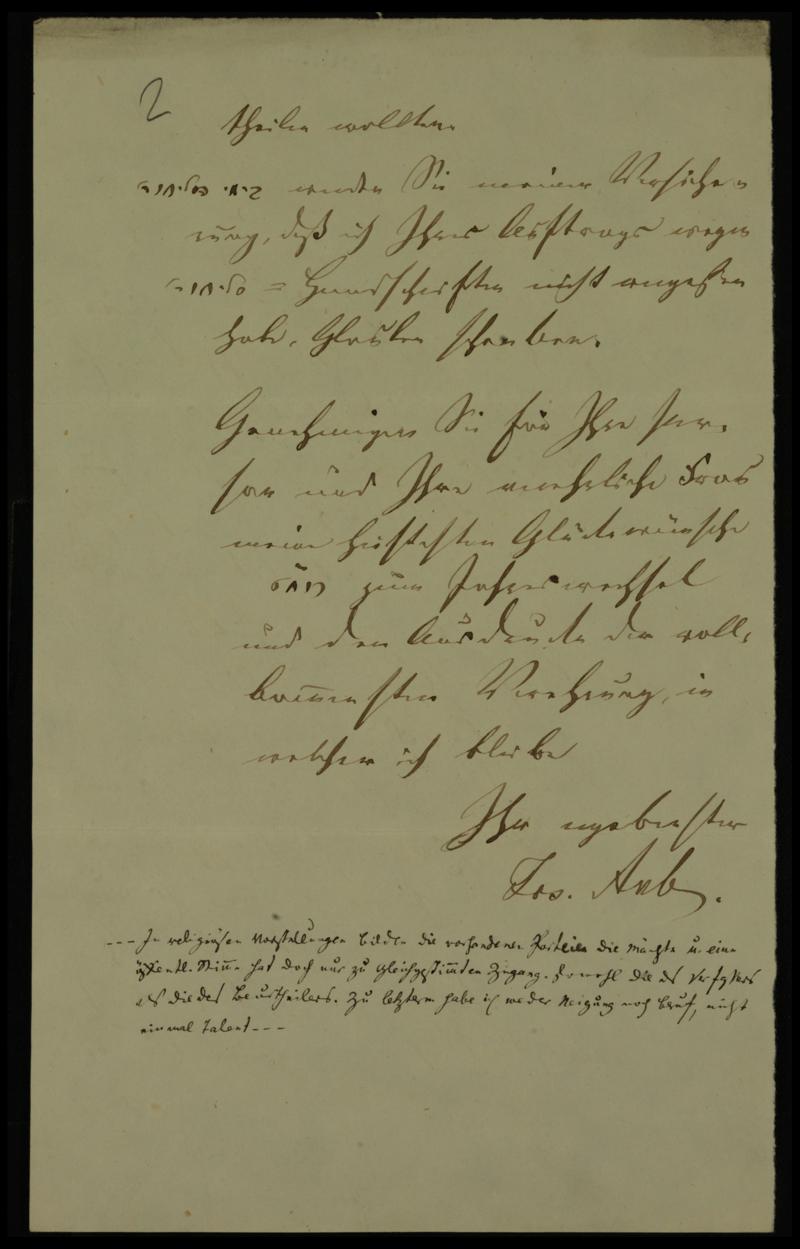 2
theilen wollten.
werden Sie meiner Versiche-
rung, daß ich Ihres Auftrags wegen
= Handschriften nicht vergessen
habe, Glauben schenken.
Genehmigen Sie für Ihre Per-
son und Ihre verehrliche Frau
meine herzlichsten Glückwünsche
zum Jahreswechsel
und den Ausdruck der voll-
kommensten Verehrung, in
welcher ich bleibe
Ihr ergebenster
Jos. Arb.
--- In religiösen Vorstellungen bilden die vorhandenen Parteien die Mächte u. eine
öffentl. Stimme hat doch nur zu Gleichgestimmten Zugang. Sowohl die des Verfassers
als die des Beurtheilers. Zu letzterm habe ich weder Neigung noch Beruf, nicht
einmal Talent ---